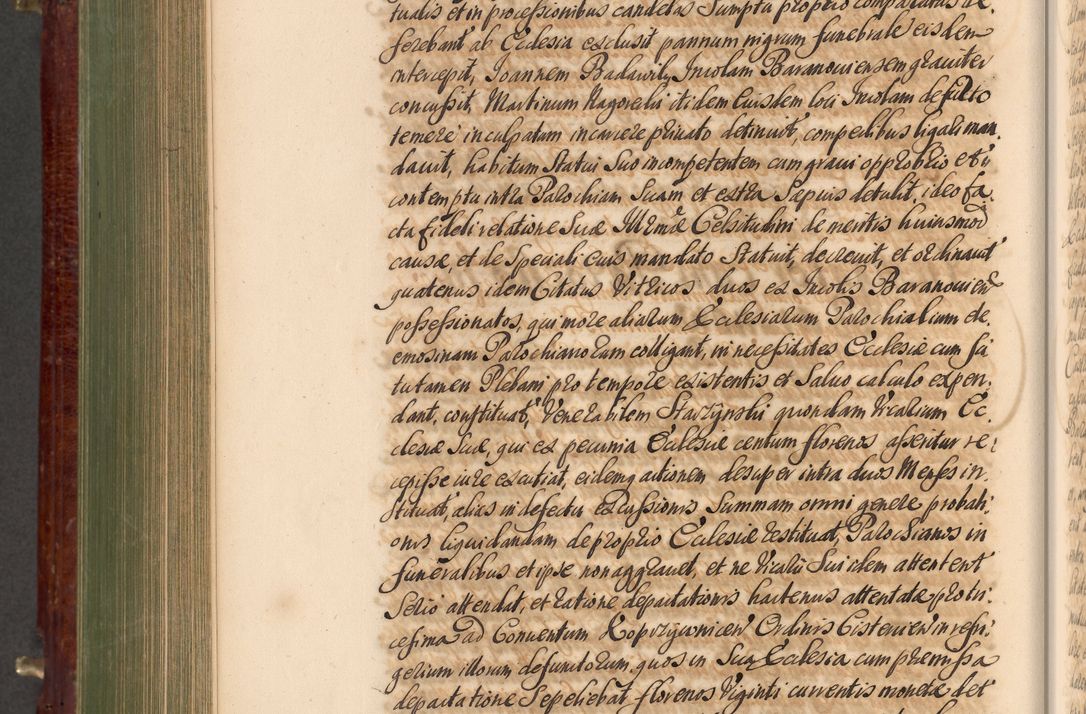 tualis et in processionibus candelas Sumptu proprio comparatas de,
ferebant ab Ecclesia exclusit pannum nigrum funebrale eisdem
intercepit, Joannem Badawily Incolam Baranoviensem graviter
concussit, Martinum Nagorski itidem Eiusdem loci Incolam de furto
temere inculpatum in carcere privato detinuit, compedibus ligari man,
davit, habitum Statui Suo incompetentem cum gravi opprobrio et
contemptu intra Parochiam Suam et extra Saepius detulit, ideo fa,
cta fideli relatione Suae Illmae Celsitudini de meritis huiusmodi
causae, et de Speciali Eius mandato Statuit, decrevit, et ordinavit
quatenus idem Citatus Vitricos duos ex Incolis Baranovien
possessionatos, qui more aliarum Ecclesiarum Parochialium de,
emosinam Parochianorum colligant, in necessitates Ecclesiae cum sci
tu tamen Plebani pro tempore existentis et Salvo calculo expen,
dant, constituat, Venerabilem Starzynski quondam Vicarium Ec,
clesiae Suae, qui ex pecunia Ecclesiae centum florenos asseritur re,
cepisse iure excutiat, eidemq actionem desuper intra duos Menses in,
stituat, alias in defectu excussionis Summam omni genere probati,
onis liquidandam de proprio Ecclesiae restituat, Parochianos in
funeralibus et ipse non aggravet, et ne Vicarii Sui idem attentent
Serio attendat, et ratione depactationis hactenus attentatae pro tri,
cesima ad Conventum Koprzywnicen Ordinis Cistercien in refri,
gerium illorum defunctorum, quos in Sua Ecclesia cum praemissa
depactatione Sepeliebat florenos Viginti currentis monetae det